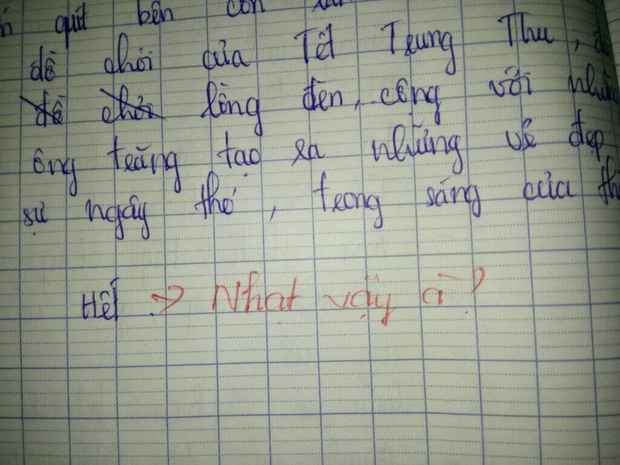 quít bên con
đồ chơi của Tết Trung Thu,
đồ chơi lồng đèn, cộng với
ông trăng tạo ra những vẻ đẹp
sự ngây thơ, trong sáng của
Hết → Nhạt vậy à?